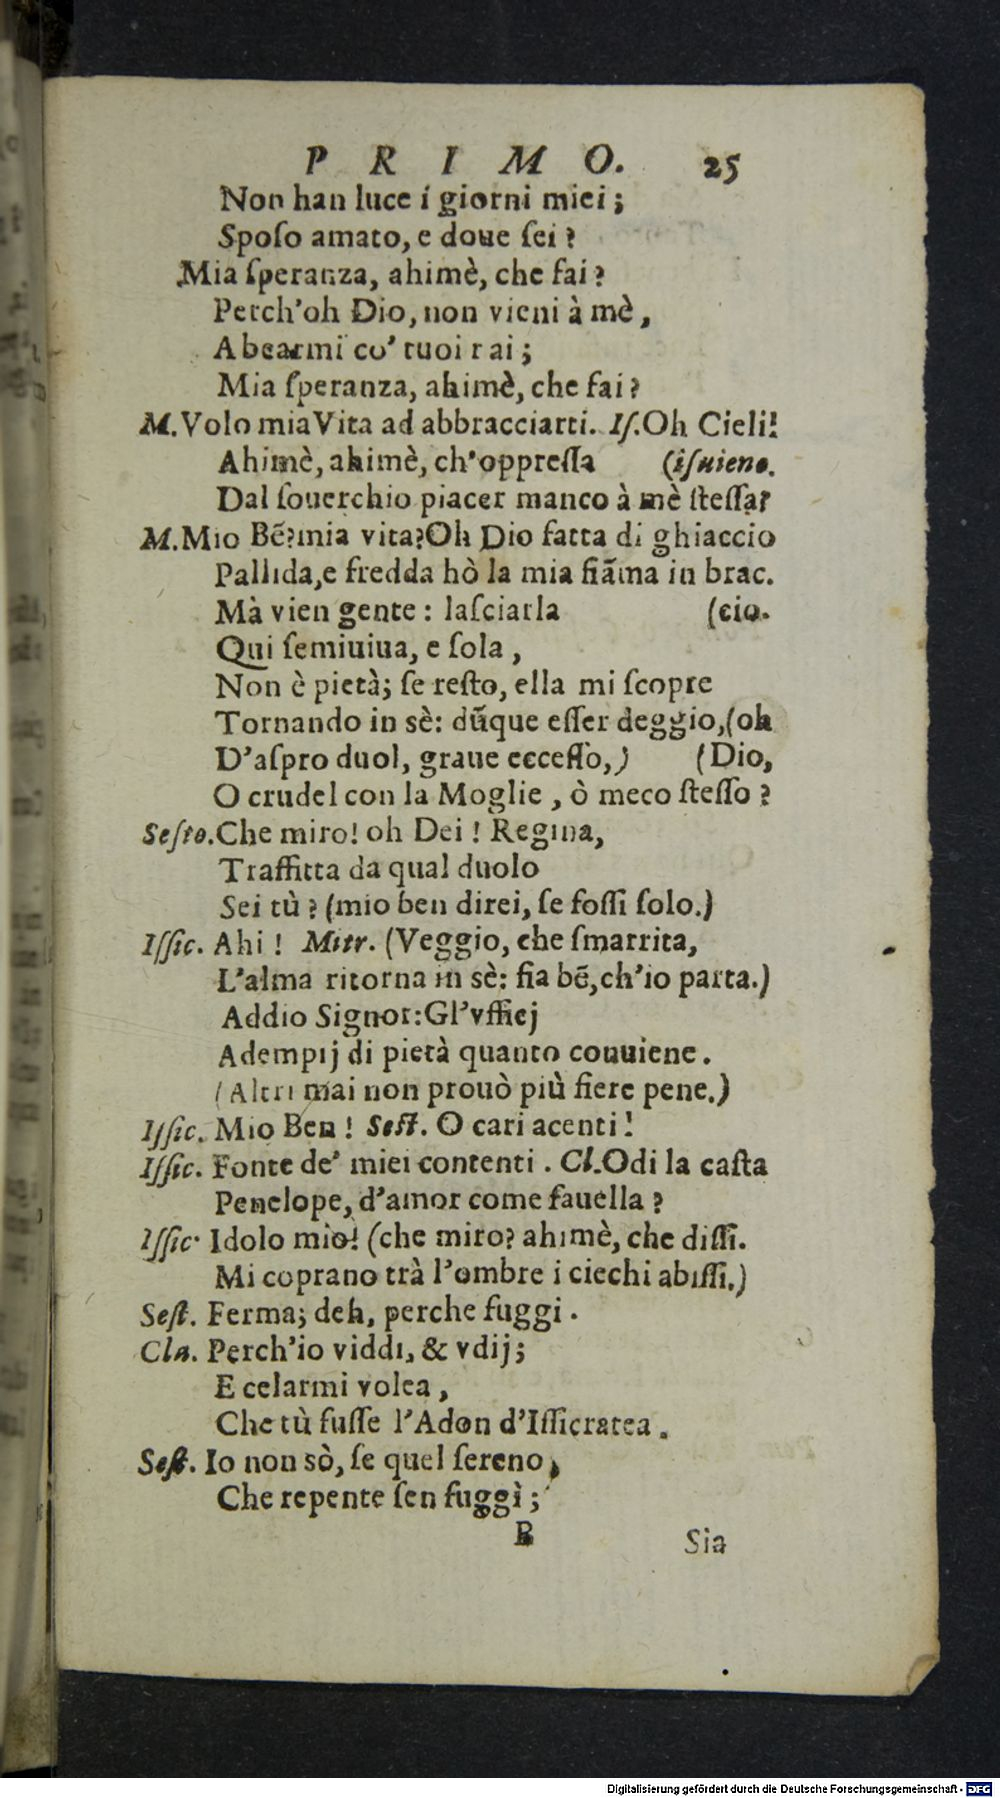 P R I M O. 25
Non han luce i giorni miei;
Spoſo amato, e doue ſei?
Mia ſperanza, ahimè, che fai?
Perch'oh Dio, non vieni à mè,
A bearmi co' tuoi rai;
Mia ſperanza, ahimè, che fai?
M. Volo mia Vita ad abbracciarti. Iſ. Oh Cieli!
Ahimè, ahimè, ch'oppreſſa (iſuiene.
Dal ſouerchio piacer manco à mè ſteſſa?
M. Mio Bẽ? mia vita? Oh Dio fatta di ghiaccio
Pallida, e fredda hò la mia fiãma in brac.
Mà vien gente: laſciarla (cio.
Qui ſemiuiua, e ſola,
Non è pietà; ſe reſto, ella mi ſcopre
Tornando in sè: dũque eſſer deggio, (oh
D'aſpro duol, graue ecceſſo,) (Dio,
O crudel con la Moglie, ò meco ſteſſo?
Seſto. Che miro! oh Dei! Regina,
Traffitta da qual duolo
Sei tù? (mio ben direi, ſe foſſi ſolo.)
Iſſic. Ahi! Mitr. (Veggio, che ſmarrita,
L'alma ritorna in sè: fia bẽ, ch'io parta.)
Addio Signor: Gl'vfficj
Adempij di pietà quanto conuiene.
(Altri mai non prouò più fiere pene.)
Iſſic. Mio Ben! Seſt. O cari acenti!
Iſſic. Fonte de' miei contenti. Cl. Odi la caſta
Penelope, d'amor come fauella?
Iſſic. Idolo mio! (che miro? ahimè, che diſſi.
Mi coprano trà l'ombre i ciechi abiſſi.)
Seſt. Ferma; deh, perche fuggi.
Cla. Perch'io viddi, & vdij;
E celarmi volea,
Che tù fuſſe l'Adon d'Iſſicratea.
Seſt. Io non sò, ſe quel ſereno,
Che repente ſen fuggì;
B Sia
Digitalisierung gefördert durch die Deutsche Forschungsgemeinschaft - DFG